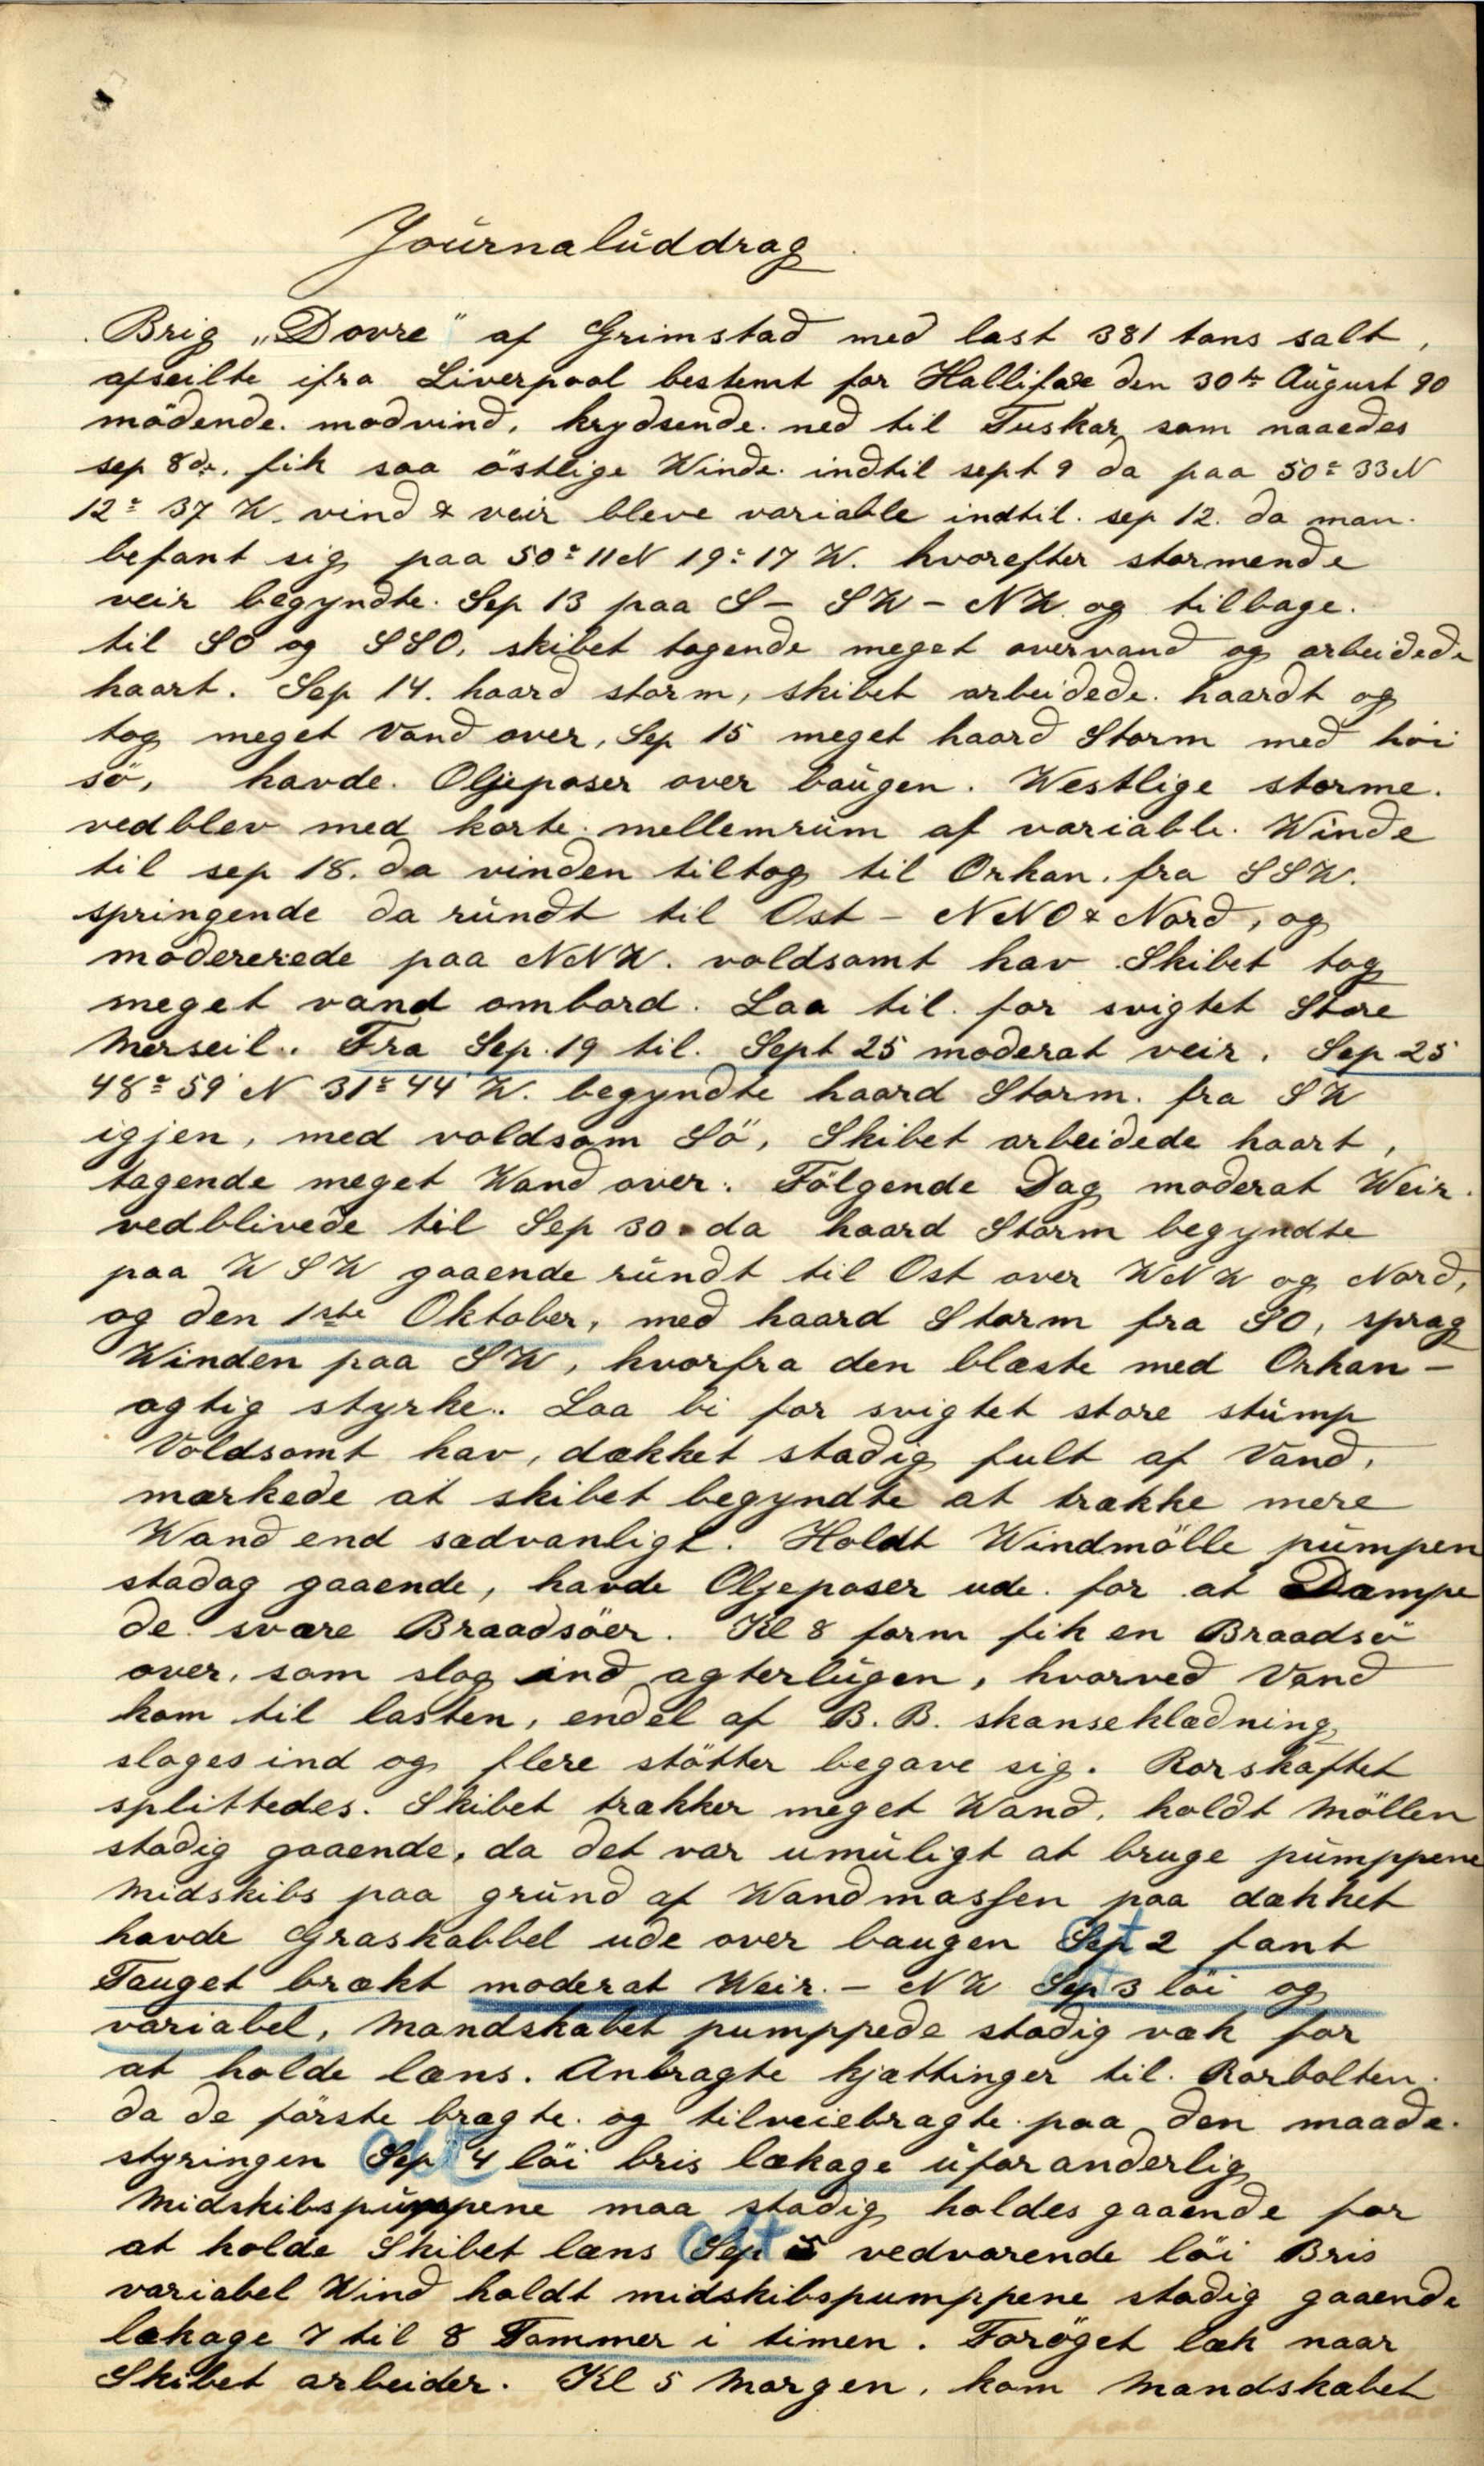 Journaluddrag
Brig „Dovre" af Grimstad med last 381 tons salt,
afseilte ifra Liverpool bestemt for Hallifax den 30te August 90
mödende modvind, krydsende ned til Tuskar som naaedes
sep 8de, fik saa östlige Winde indtil sept 9 da paa 50° 33 N
12° 37 W. vind & veir bleve variable indtil sep 12. da man
befant sig paa 50° 11 N 19° 17 W. hvorefter stormende
veir begyndte Sep 13 paa S - SW - NW og tilbage
til SO og SSO, skibet tagende meget overvand og arbeidede
haart. Sep 14. haard storm, skibet arbeidede haardt og
tog meget Vand over, Sep 15 meget haard Storm med höi
sö, havde Oljeposer over baugen. Westlige storme
vedblev med korte mellemrum af variable Winde
til sep 18. da vinden tiltog til Orkan fra SSW.
springende da rundt til Ost - NNO & Nord, og
modererede paa NNW. voldsomt hav Skibet tog
meget vand ombord. Laa til for svigtet Store
Merseil. Fra Sep. 19 til Sept 25 moderat veir. Sep 25
48° 59' N 31° 44' W. begyndte haard Storm fra SW
igjen, med voldsom Sö, Skibet arbeidede haart,
tagende meget Wand over. Fölgende Dag moderat Weir
vedblivede til Sep 30. da haard Storm begyndte
paa WSW gaaende rundt til Ost over WNW og Nord,
og den 1ste Oktober, med haard Storm fra SO, sprag
Winden paa SW, hvorfra den blæste med Orkan-
agtig styrke. Laa bi for svigtet store stump
Voldsomt hav, dækket stadig fult af Vand,
mærkede at skibet begyndte at trække mere
Wand end sædvanligt. Holdt Windmölle pumpen
stadag gaaende, havde Oljeposer ude for at Dæmpe
de svære Braadsöer. Kl 8 form fik en Braadsö
over, som slog ind agterlugen, hvorved Vand
kom til lasten, endel af B.B. skanseklædning
sloges ind og flere stötter begave sig. Rorskaftet
splittedes. Skibet trækker meget Wand, holdt Möllen
stadig gaaende, da det var umuligt at bruge pumppene
Midskibs paa grund af Wandmassen paa dækket
havde Græskabbel ude over baugen Sept 2 fant
Tauget brækt moderat Weir. - NW Sep 3 löi og
variabel, Mandskabet pumppede stadig væk for
at holde læns. Anbragte kjættinger til Rorbolten
da de förste brægte og tilveiebragte paa den maade
styringen Sep Okt 4 löi bris lækage uforanderlig
Midskibspumppene maa stadig holdes gaaende for
at holde Skibet læns Sep Okt 5 vedvarende löi Bris
variabel Wind holdt midskibspumppene stadig gaaende
lækage 7 til 8 Tommer i timen. Foröget læk naar
Skibet arbeider. Kl 5 Morgen, kom Mandskabet